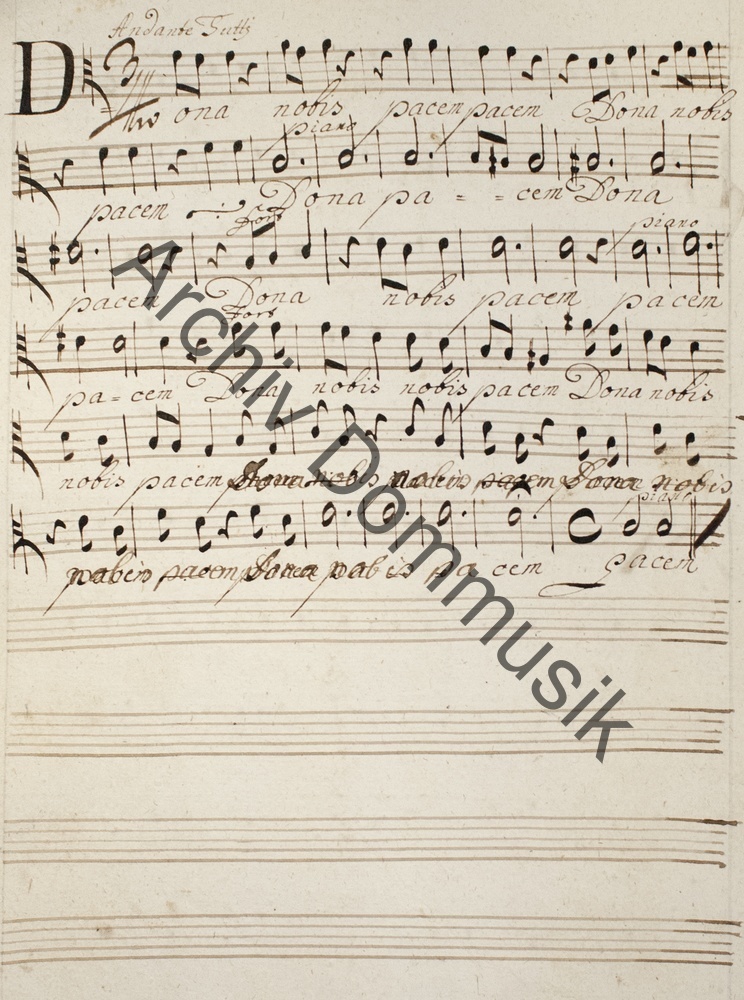 Andante Tutti
Dona nobis pacem pacem Dona nobis
piano
pacem Dona pa = = cem Dona
fors piano
pacem Dona nobis pacem pacem
fors
pa = cem Dona nobis nobis pacem Dona nobis
nobis pacem Dona nobis pacem Dona nobis
piano
pacem Dona nobis pa cem pacem
Archiv Dommusik